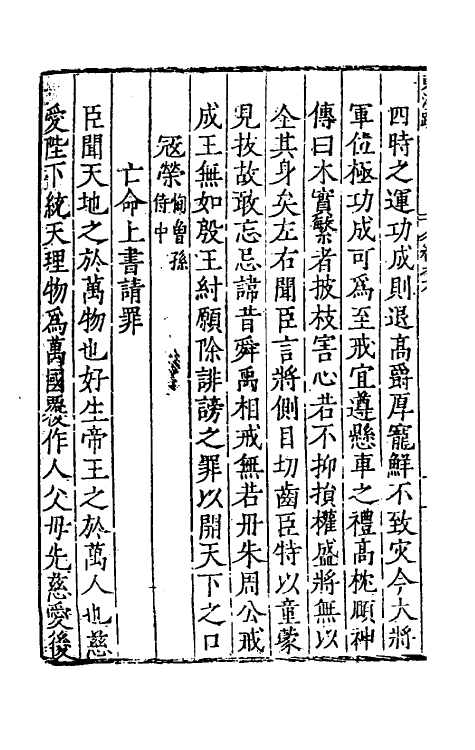 四時之運功成則退高爵厚寵鮮不致灾今大將
軍位極功成可爲至戒宜遵懸車之禮高枕頥神
傳曰木實繁者披枝害心若不抑損權盛將無以
全其身矣左右聞臣言將側目切齒臣特以童蒙
見拔故敢忘忌諱昔舜禹相戒無若丹朱周公戒
成王無如殷王紂願除誹謗之罪以開天下之口
冦榮恂曾孫
侍中
亡命上書請罪
臣聞天地之於萬物也好生帝王之於萬人也慈
愛陛下統天理物爲萬國覆作人父母先慈愛後